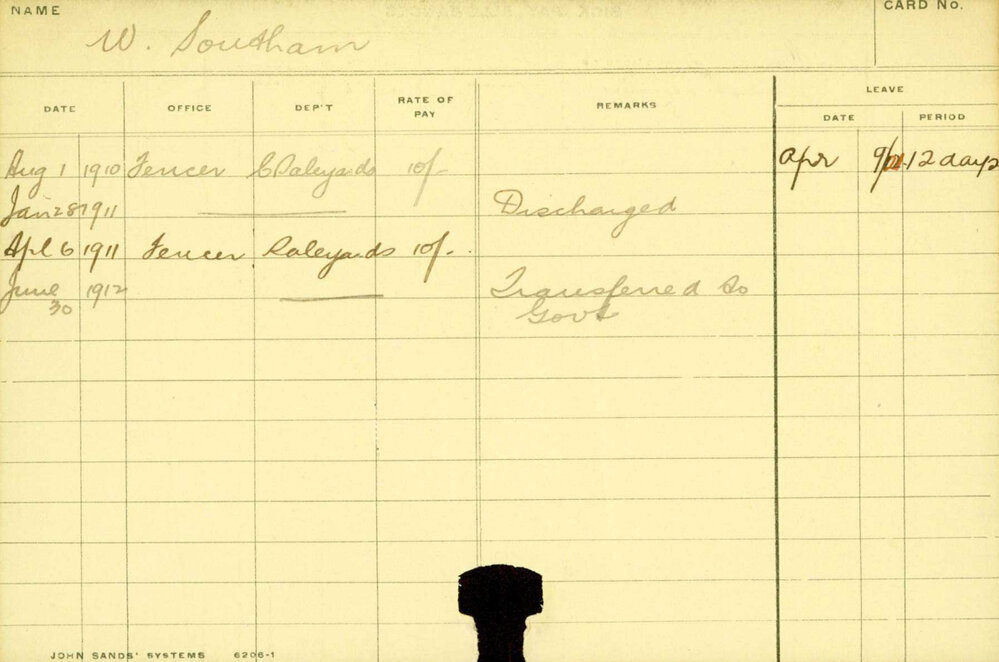 NAME
W. Southam
CARD No.
DATE OFFICE DEP'T RATE OF PAY REMARKS LEAVE
DATE PERIOD
Aug 1 1910 Fencer C Saleyards 10/- Apr 9/ 12 days
Jan 28 1911 Discharged
Apl 6 1911 Fencer Saleyards 10/-
June 30 1912 Transferred to
Govt
JOHN SANDS' SYSTEMS 6206-1